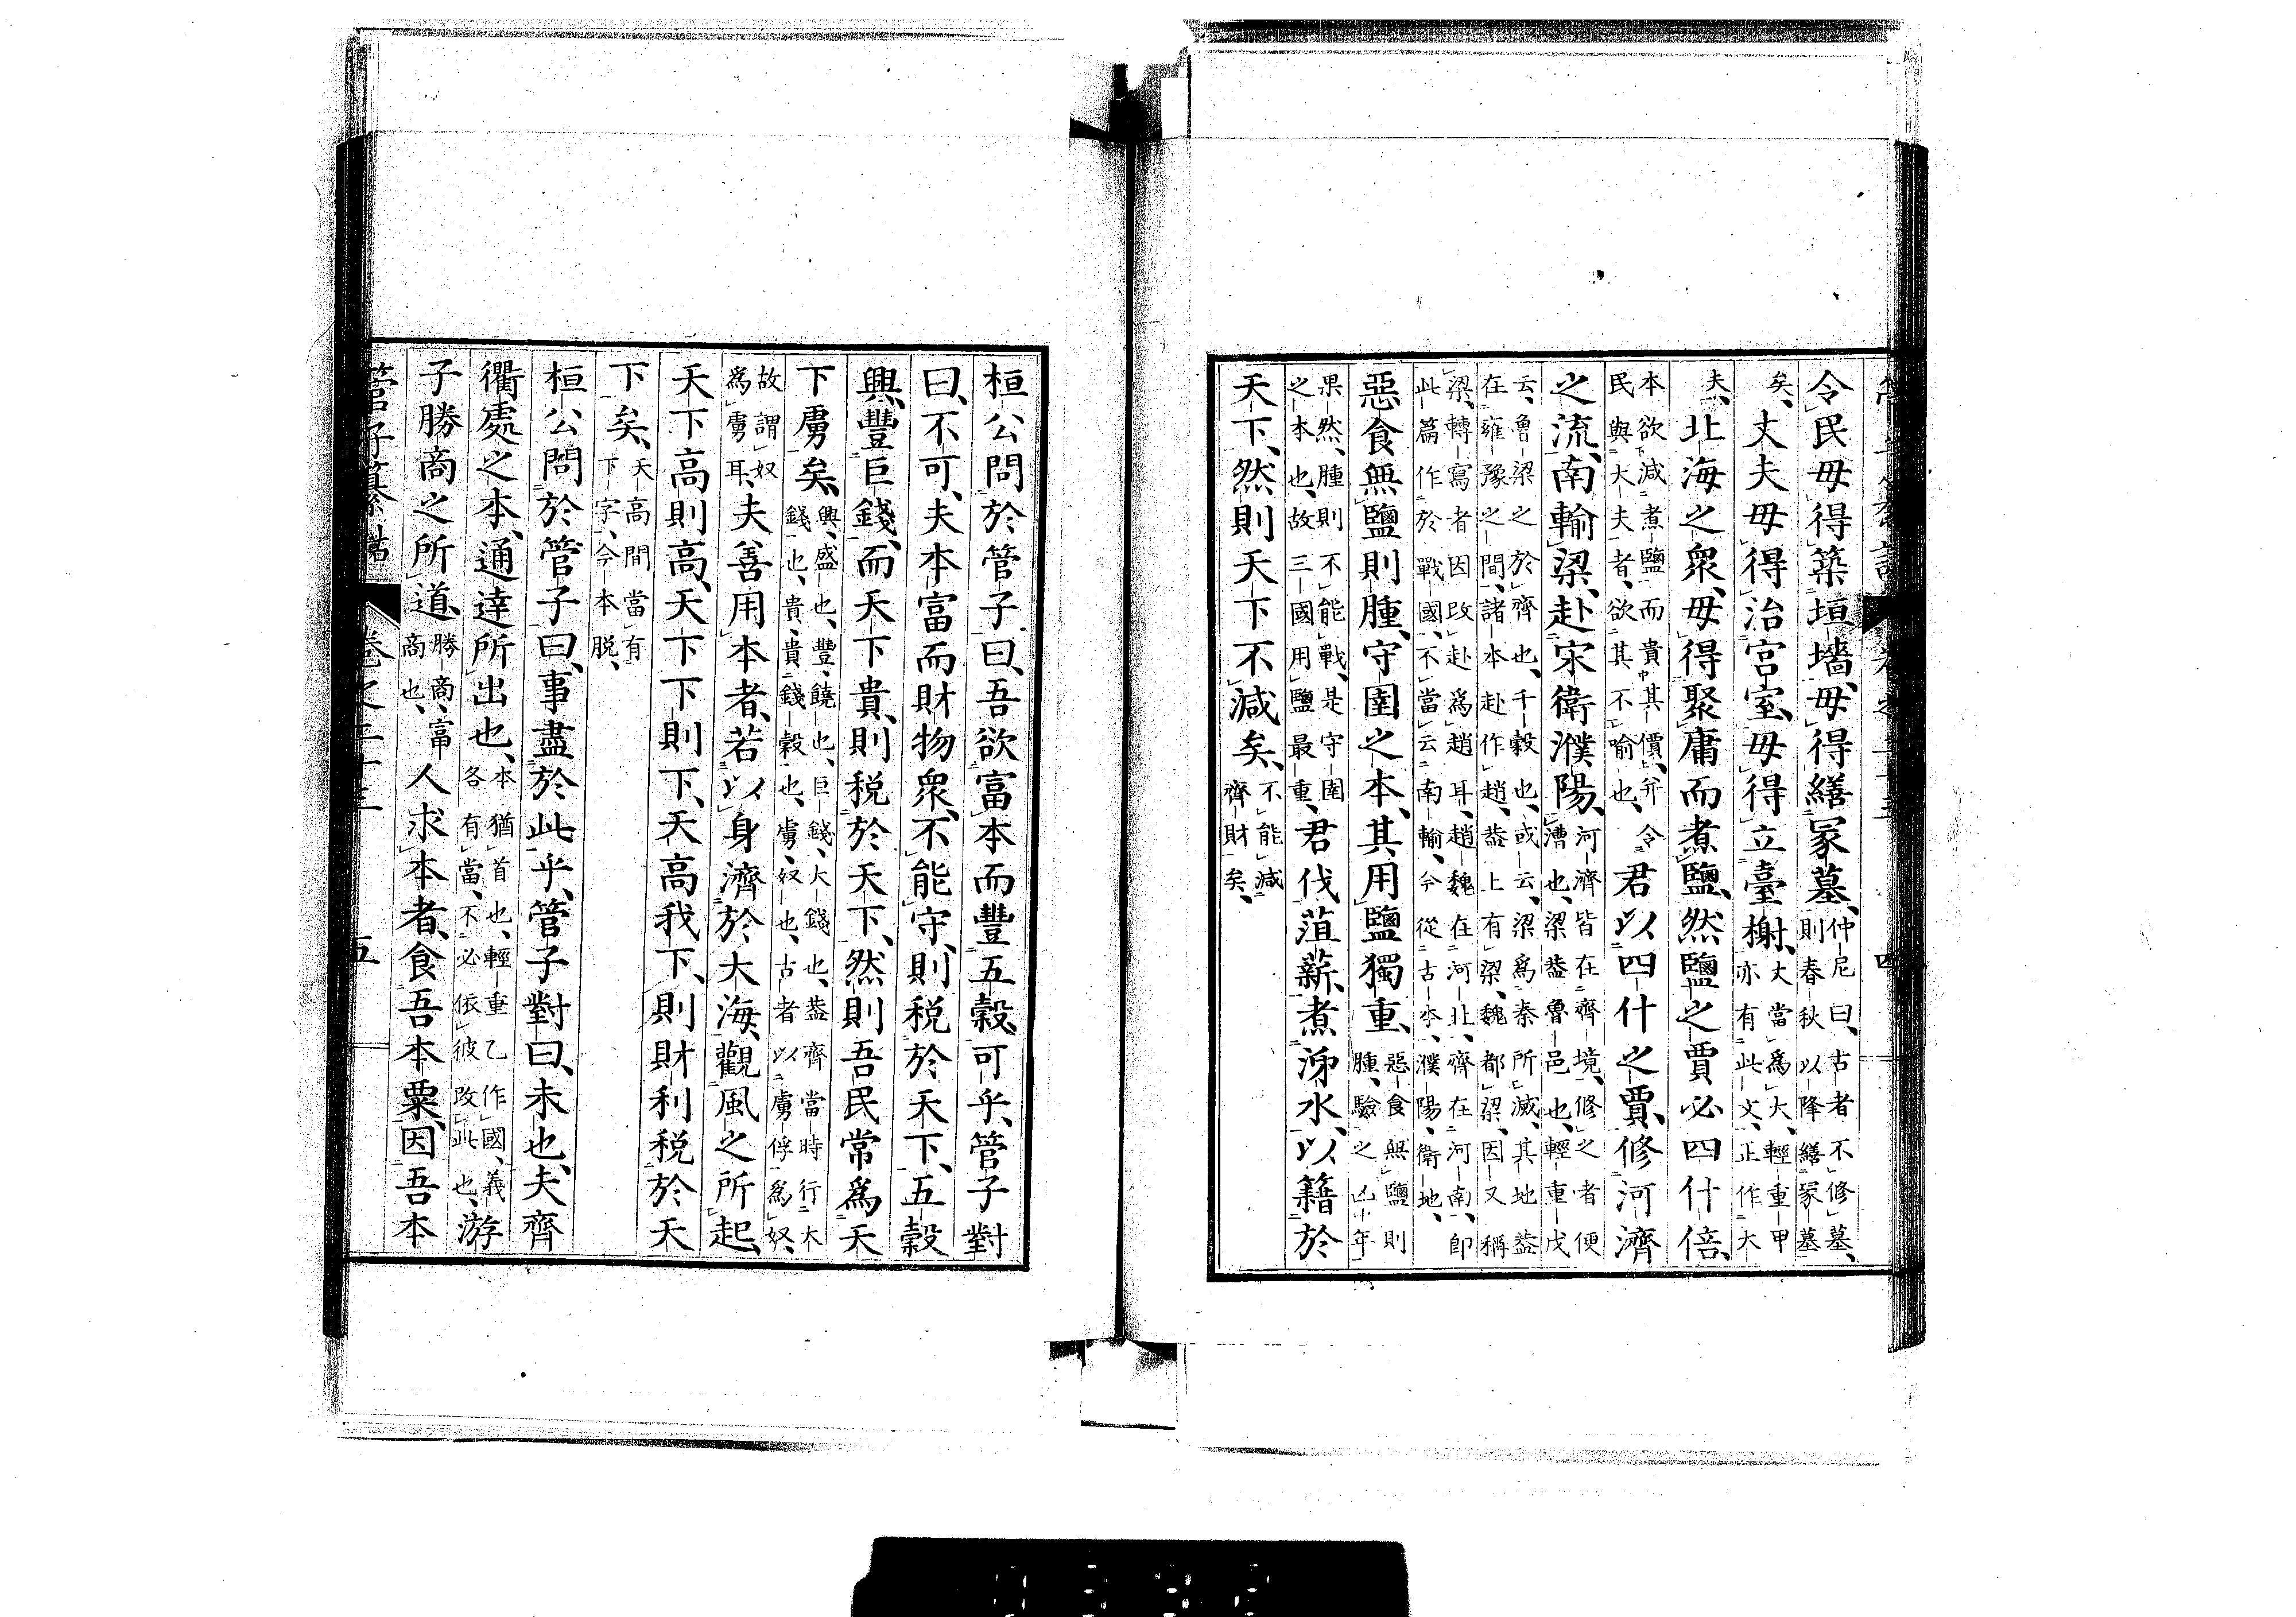 令民毋得築垣墻、毋得繕冢墓、仲尼曰、古者不修墓、則春秋以降繕冢墓
矣、丈夫毋得治宮室、毋得立臺榭、丈當爲大、輕重甲亦有此文、正作大
夫、北海之衆、毋得聚庸而煮鹽、然鹽之賈必四什倍、
本欲減煮鹽而貴其價、幷令民與大夫者、欲其不喻也、君以四什之賈、修河濟
之流、南輸梁、赴宋衛濮陽、河濟皆在齊境、修之者便漕也、梁蓋魯邑也、輕重戊
云、魯梁之於齊也、千穀也、或云、梁爲秦所滅、其地蓋在雍豫之間、諸本赴作趙、蓋上有梁、魏都梁、因又稱
梁、轉寫者因改赴爲趙耳、趙魏在河北、齊在河南、卽此篇作於戰國、不當云南輸、今從古本、濮陽、衛地、
惡食無鹽則腫、守圉之本、其用鹽獨重、惡食無鹽則腫、驗之凶年
果然、腫則不能戰、是守圉之本也、故三國用鹽最重、君伐菹薪、煮泲水、以籍於
天下、然則天下不減矣、不能減齊財矣、
桓公問於管子曰、吾欲富本而豐五穀、可乎、管子對
曰、不可、夫本富而財物衆、不能守、則稅於天下、五穀
興、豐巨錢、而天下貴、則稅於天下、然則吾民常爲天
下虜矣、興、盛也、豐、饒也、巨錢、大錢也、蓋齊當時行大錢也、貴、貴錢穀也、虜、奴也、古者以虜俘爲奴、
故謂奴爲虜耳、夫善用本者、若以身濟於大海、觀風之所起、
天下高則高、天下下則下、天高我下、則財利稅於天
下矣、天高間當有下字、今本脫、
桓公問於管子曰、事盡於此乎、管子對曰、未也、夫齊
衢處之本、通達所出也、本猶首也、輕重乙作國、義各有當、不必依彼改此也、游
子勝商之所道、勝商、富商也、人求本者、食吾本粟、因吾本
管子纂詁 卷之二十三 五